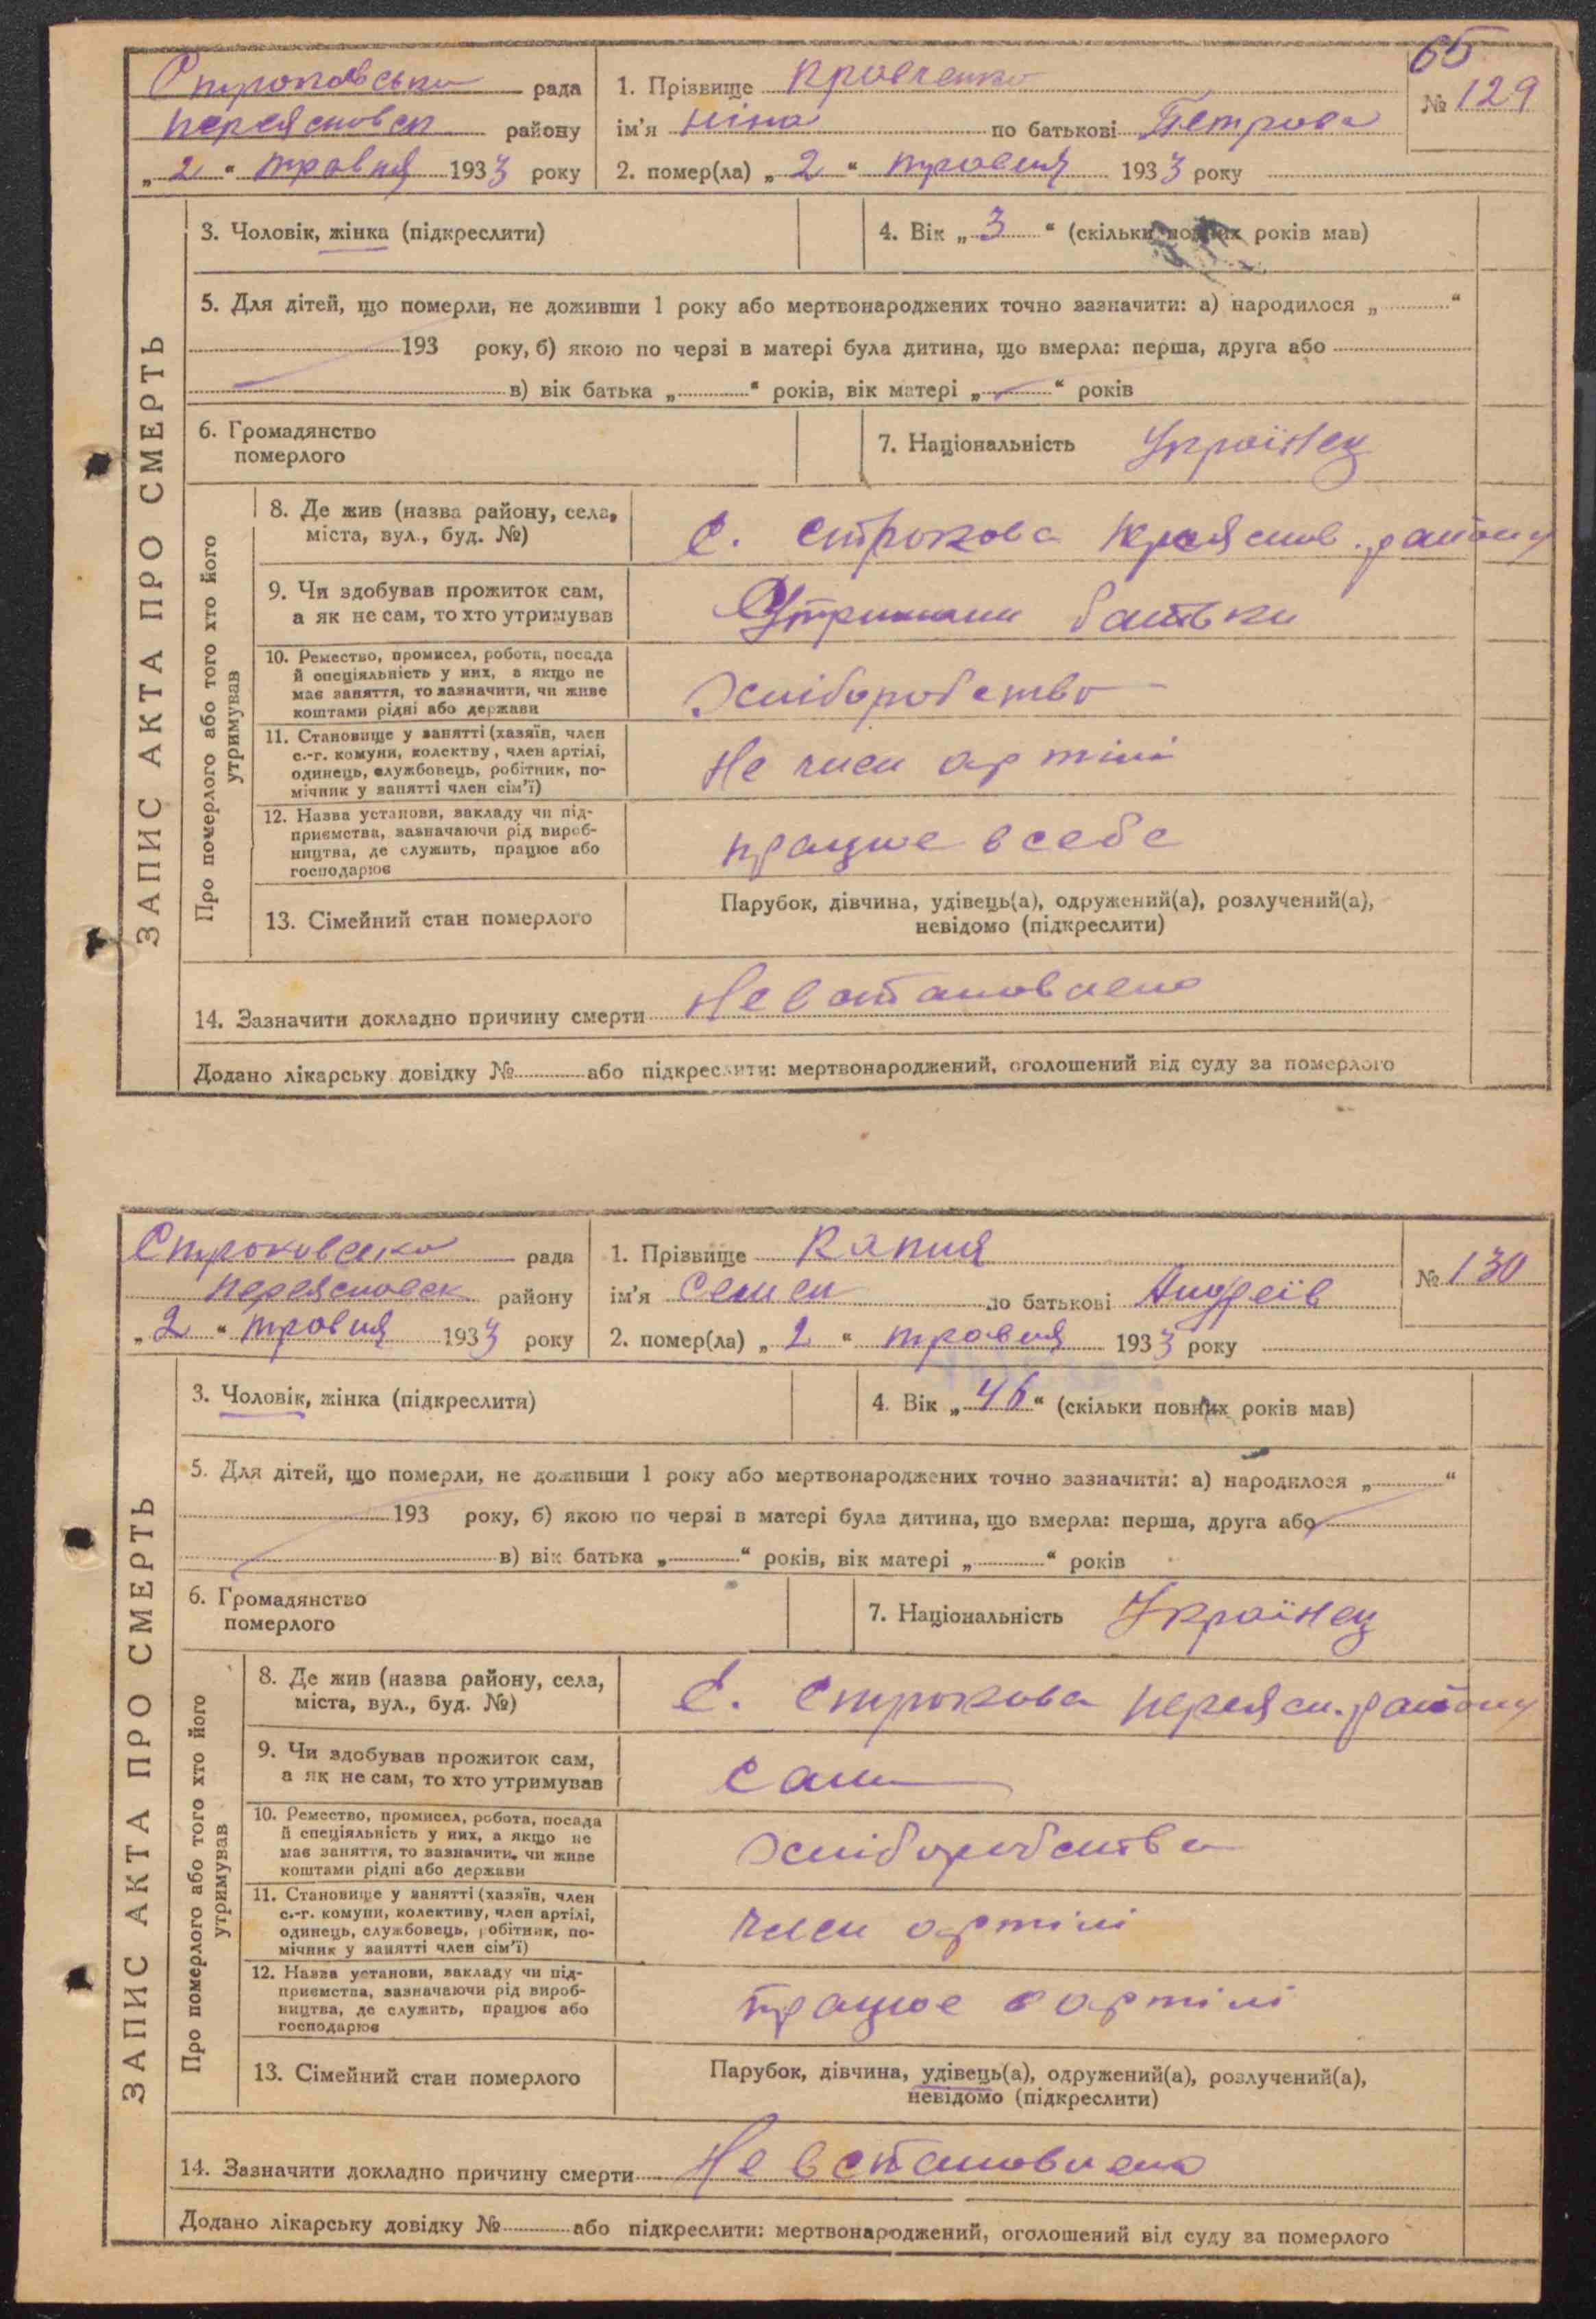 65
Строковська рада
Переясновськ району
„2“ травня 1933 року
1. Прізвище Кравченко
ім’я Ніна по батькові Петрова
2. помер(ла) „2“ травня 1933 року
№ 129
ЗАПИС АКТА ПРО СМЕРТЬ
3. Чоловік, жінка (підкреслити)
4. Вік „3“ (скільки повних років мав)
5. Для дітей, що померли, не доживши 1 року або мертвонароджених точно зазначити: а) народилося „ “
193 року, б) якою по черзі в матері була дитина, що вмерла: перша, друга або
в) вік батька „ “ років, вік матері „ “ років
6. Громадянство
померлого
7. Національність Україінец
Про померлого або того хто його
утримував
8. Де жив (назва району, села,
міста, вул., буд. №)
с. Строкова район у
9. Чи здобував прожиток сам,
а як не сам, то хто утримував
Утримали батьки
10. Ремество, промисел, робота, посада
й спеціяльність у них, а якщо не
має заняття, то зазначити, чи живе
коштами рідні або держави
Хліборобство
11. Становище у занятті (хазяїн, член
с.-г. комуни, колектву, член артілі,
одинець, службовець, робітник, по-
мічник у занятті член сім’ї)
Не член артілі
12. Назва установи, закладу чи під-
приємства, зазначаючи рід вироб-
ництва, де служить, працює або
господарює
працює в себе
13. Сімейний стан померлого
Парубок, дівчина, удівець(а), одружений(а), розлучений(а),
невідомо (підкреслити)
14. Зазначити докладно причину смерти Не встановлено
Додано лікарську довідку № або підкреслити: мертвонароджений, оголошений від суду за померлого
Строковська рада
району
„2“ травня 1933 року
1. Прізвище Капля
ім’я Семен по батькові Андреїв
2. помер(ла) „2“ травня 1933 року
№ 130
ЗАПИС АКТА ПРО СМЕРТЬ
3. Чоловік, жінка (підкреслити)
4. Вік „46“ (скільки повних років мав)
5. Для дітей, що померли, не доживши 1 року або мертвонароджених точно зазначити: а) народилося „ “
193 року, б) якою по черзі в матері була дитина, що вмерла: перша, друга або
в) вік батька „ “ років, вік матері „ “ років
6. Громадянство
померлого
7. Національність Україінец
Про померлого або того хто його
утримував
8. Де жив (назва району, села,
міста, вул., буд. №)
с. Строкова Переясл. району
9. Чи здобував прожиток сам,
а як не сам, то хто утримував
Сам
10. Ремество, промисел, робота, посада
й спеціяльність у них, а якщо не
має заняття, то зазначити, чи живе
коштами рідні або держави
Хліборобства
11. Становище у занятті (хазяїн, член
с.-г. комуни, колективу, член артілі,
одинець, службовець, робітник, по-
мічник у занятті член сім’ї)
член артілі
12. Назва установи, закладу чи під-
приємства, зазначаючи рід вироб-
ництва, де служить, працює або
господарює
працює в артілі
13. Сімейний стан померлого
Парубок, дівчина, удівець(а), одружений(а), розлучений(а),
невідомо (підкреслити)
14. Зазначити докладно причину смерти Не встановлено
Додано лікарську довідку № або підкреслити: мертвонароджений, оголошений від суду за померлого